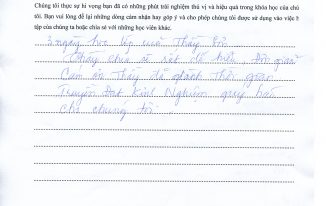 Chúng tôi thực sự hi vọng bạn đã có những phút trải nghiệm thú vị và hiệu quả trong khóa học của chú
tôi. Bạn vui lòng để lại những dòng cảm nhận hay góp ý và cho phép chúng tôi được sử dụng vào việc h
tập của chúng ta hoặc chia sẻ với những học viên khác.
3 ngày học lớp của Thầy
Thầy chia sẻ rất dễ hiểu, đơn giản
Cảm ơn thầy đã dành thời gian
Truyền Đạt kinh Nghiệm quý báu
cho chúng tôi.